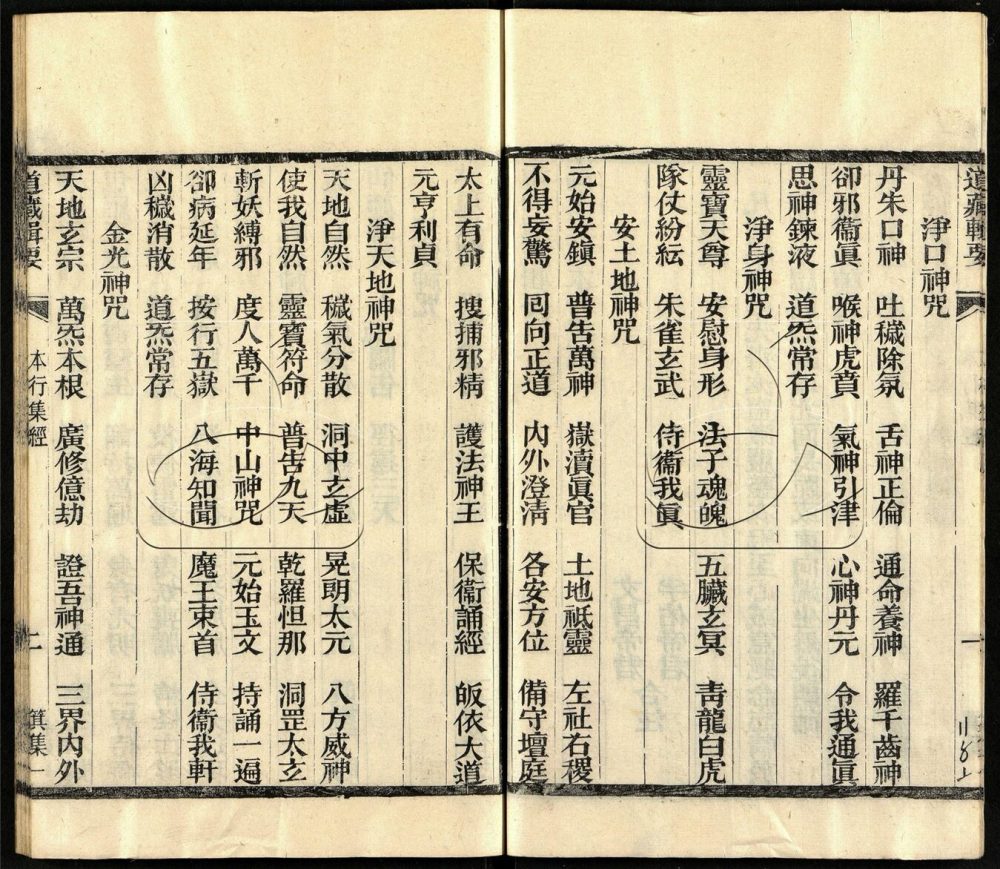 道藏輯要
淨口神咒
丹朱口神 吐穢除氛 舌神正倫 通命養神 羅千齒神
卻邪衞眞 喉神虎賁 氣神引津 心神丹元 令我通眞
思神鍊液 道炁常存
淨身神咒
靈寶天尊 安慰身形 法子魂魄 五臟玄冥 靑龍白虎
隊仗紛紜 朱雀玄武 侍衞我眞
安土地神咒
元始安鎭 普告萬神 嶽瀆眞官 土地祇靈 左社右稷
不得妄驚 囘向正道 內外澄淸 各安方位 備守壇庭
太上有命 搜捕邪精 護法神王 保衞誦經 皈依大道
元亨利貞
淨天地神咒
天地自然 穢氣分散 洞中玄虛 晃朗太元 八方威神
使我自然 靈寶符命 普告九天 乾羅怛那 洞罡太玄
斬妖縛邪 度人萬千 中山神咒 元始玉文 持誦一遍
卻病延年 按行五嶽 八海知聞 魔王束首 侍衞我軒
凶穢消散 道炁常存
金光神咒
天地玄宗 萬炁本根 廣修億劫 證吾神通 三界內外
道藏輯要 本行集經 二 箕集一